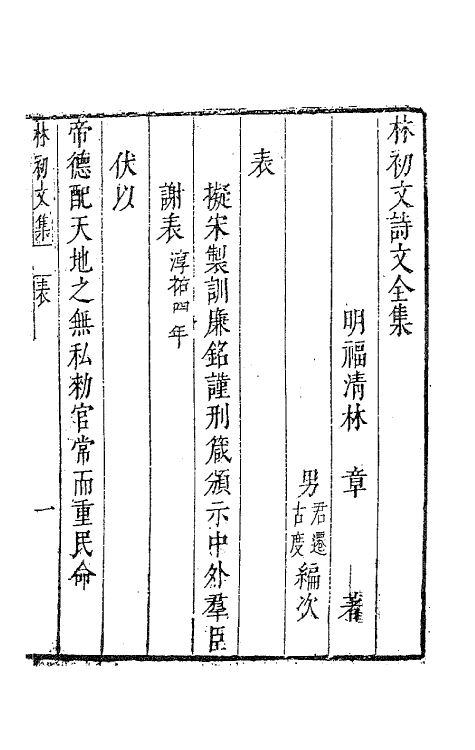 林初文詩文全集
明福清林　章　著
男君遷古度編次
表
擬宋製訓廉銘謹刑箴頒示中外羣臣
謝表淳祐四年
伏以
帝德配天地之無私勑官常而重民命
林初文集　表　一